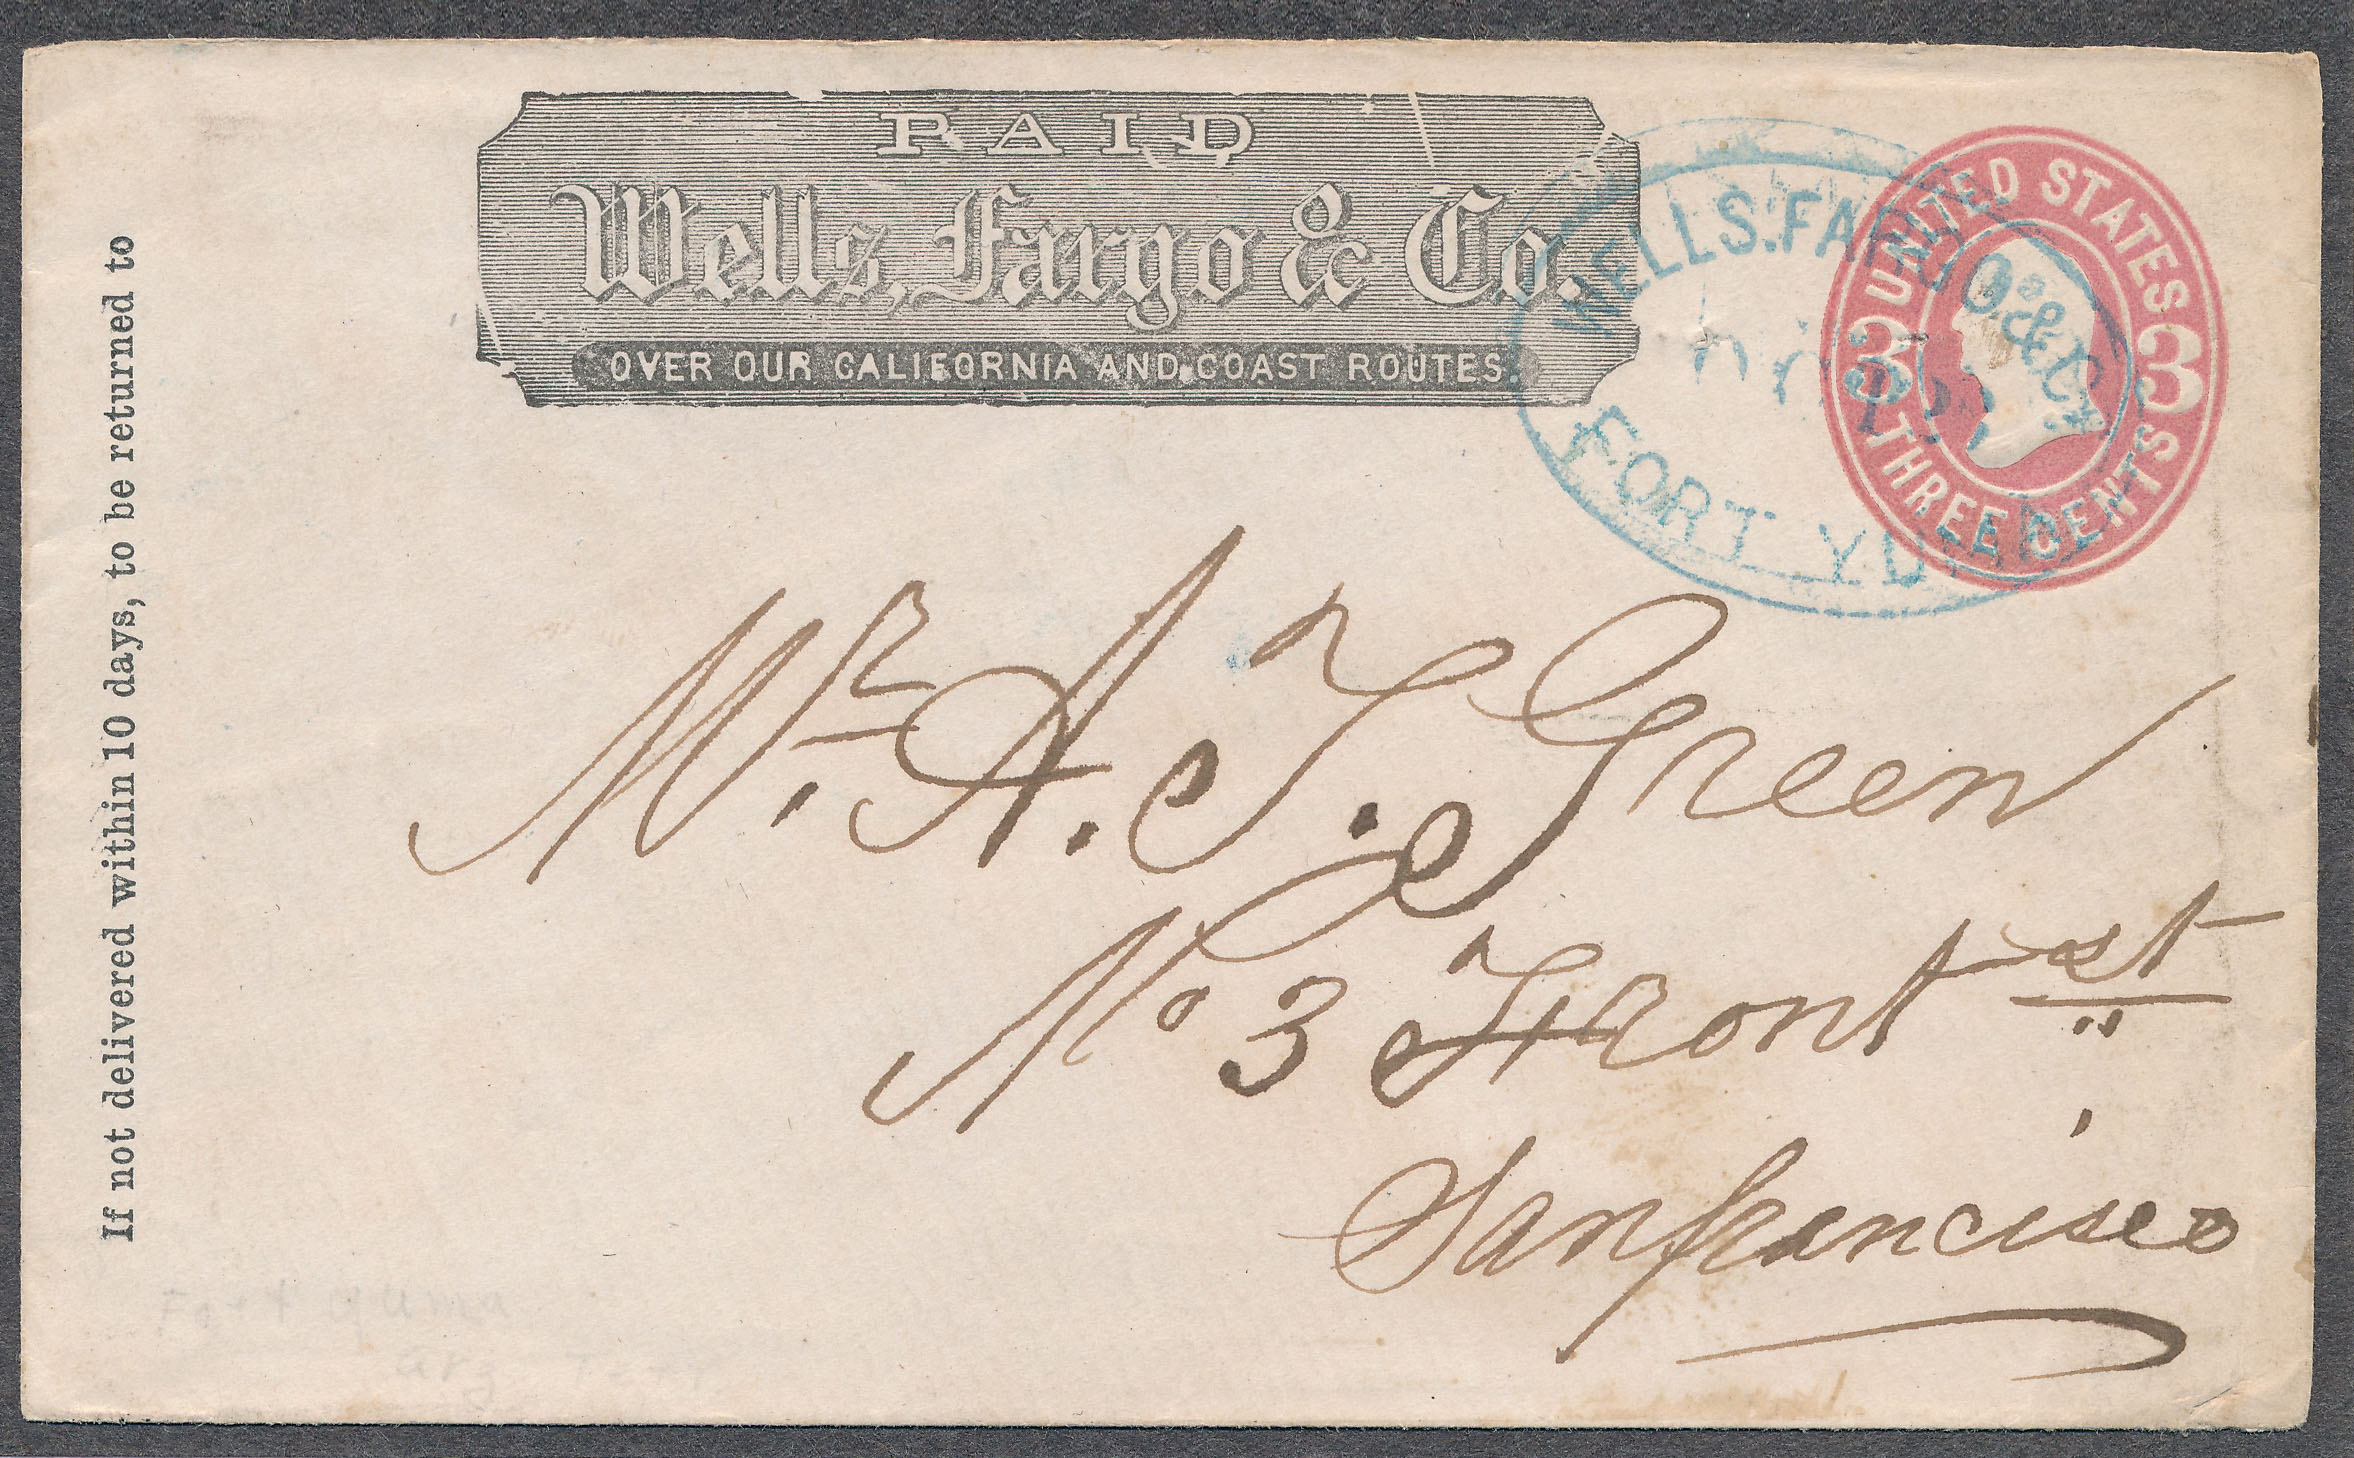 PAID
Wells, Fargo & Co.
OVER OUR CALIFORNIA AND COAST ROUTES.
UNITED STATES
3 3
THREE CENTS
WELLS.FARGO & Co
FORT YUMA
If not delivered within 10 days, to be returned to
Mr. A. T. Green
No 3 Front st
Sanfrancisco
Fort Yuma